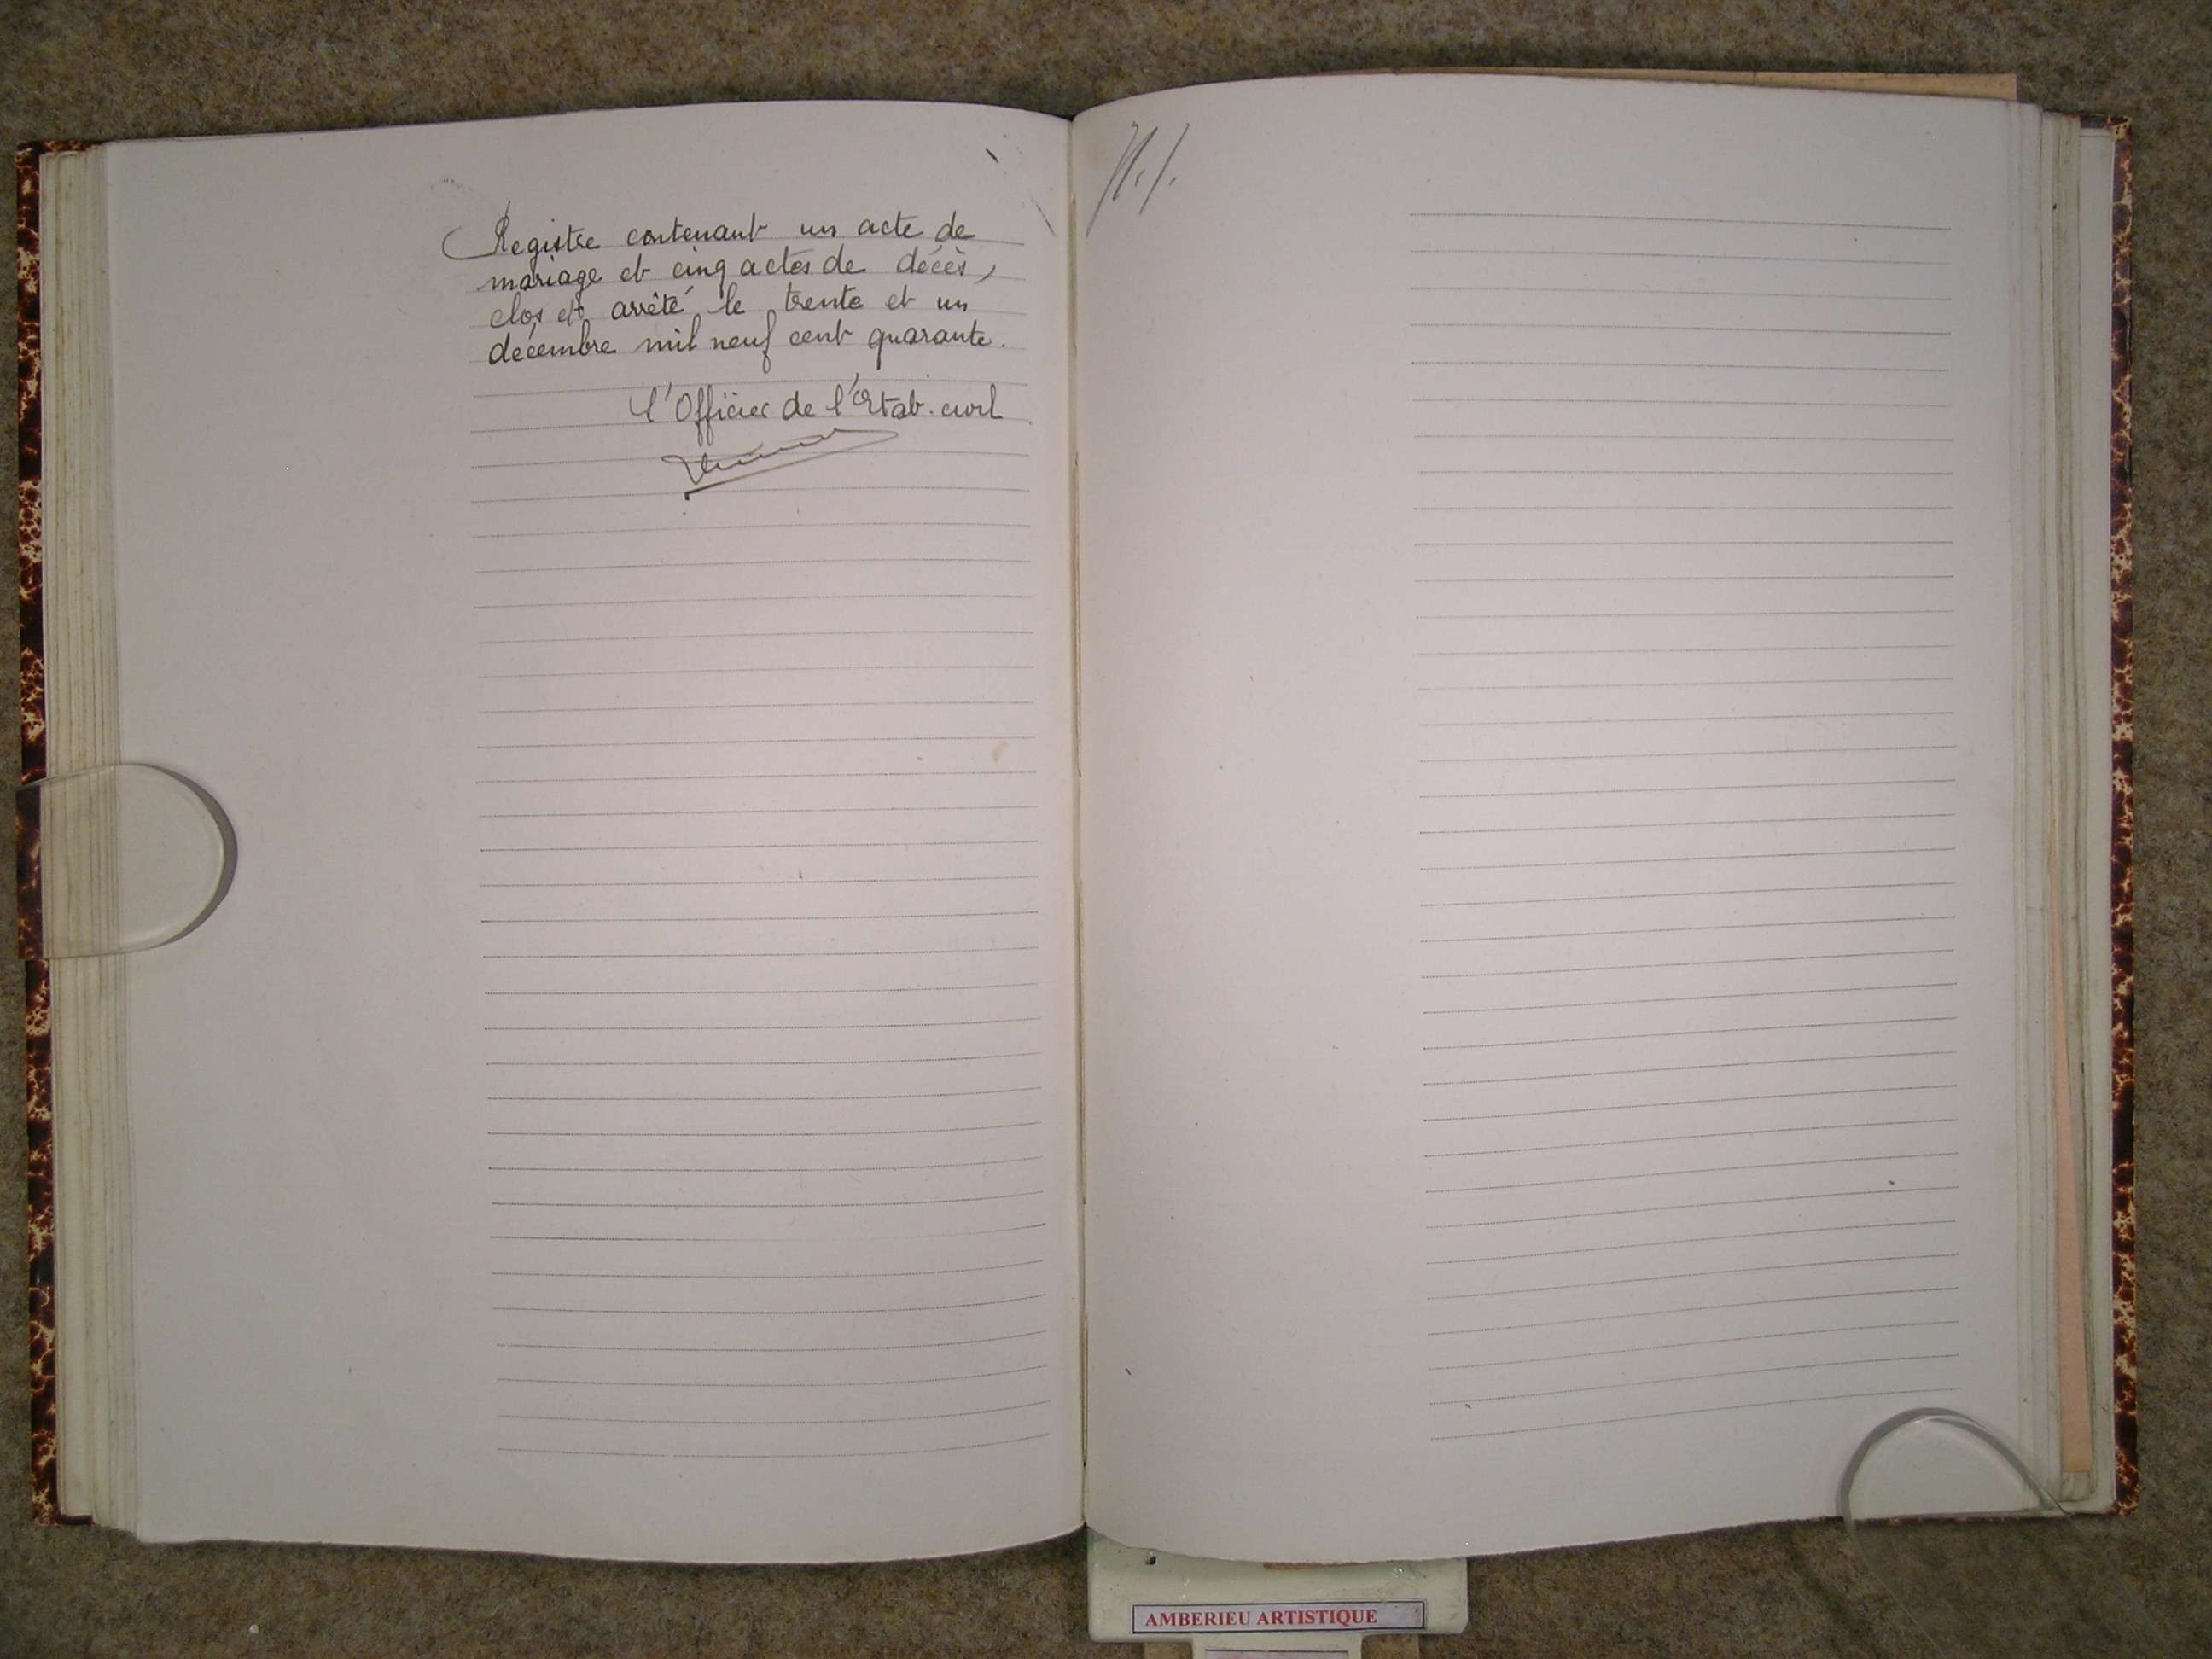 Registre contenant un acte de
mariage et cinq actes de décès,
clos et arrêté le trente et un
décembre mil neuf cent quarante.
l'Officier de l'Etat-civil
AMBERIEU ARTISTIQUE